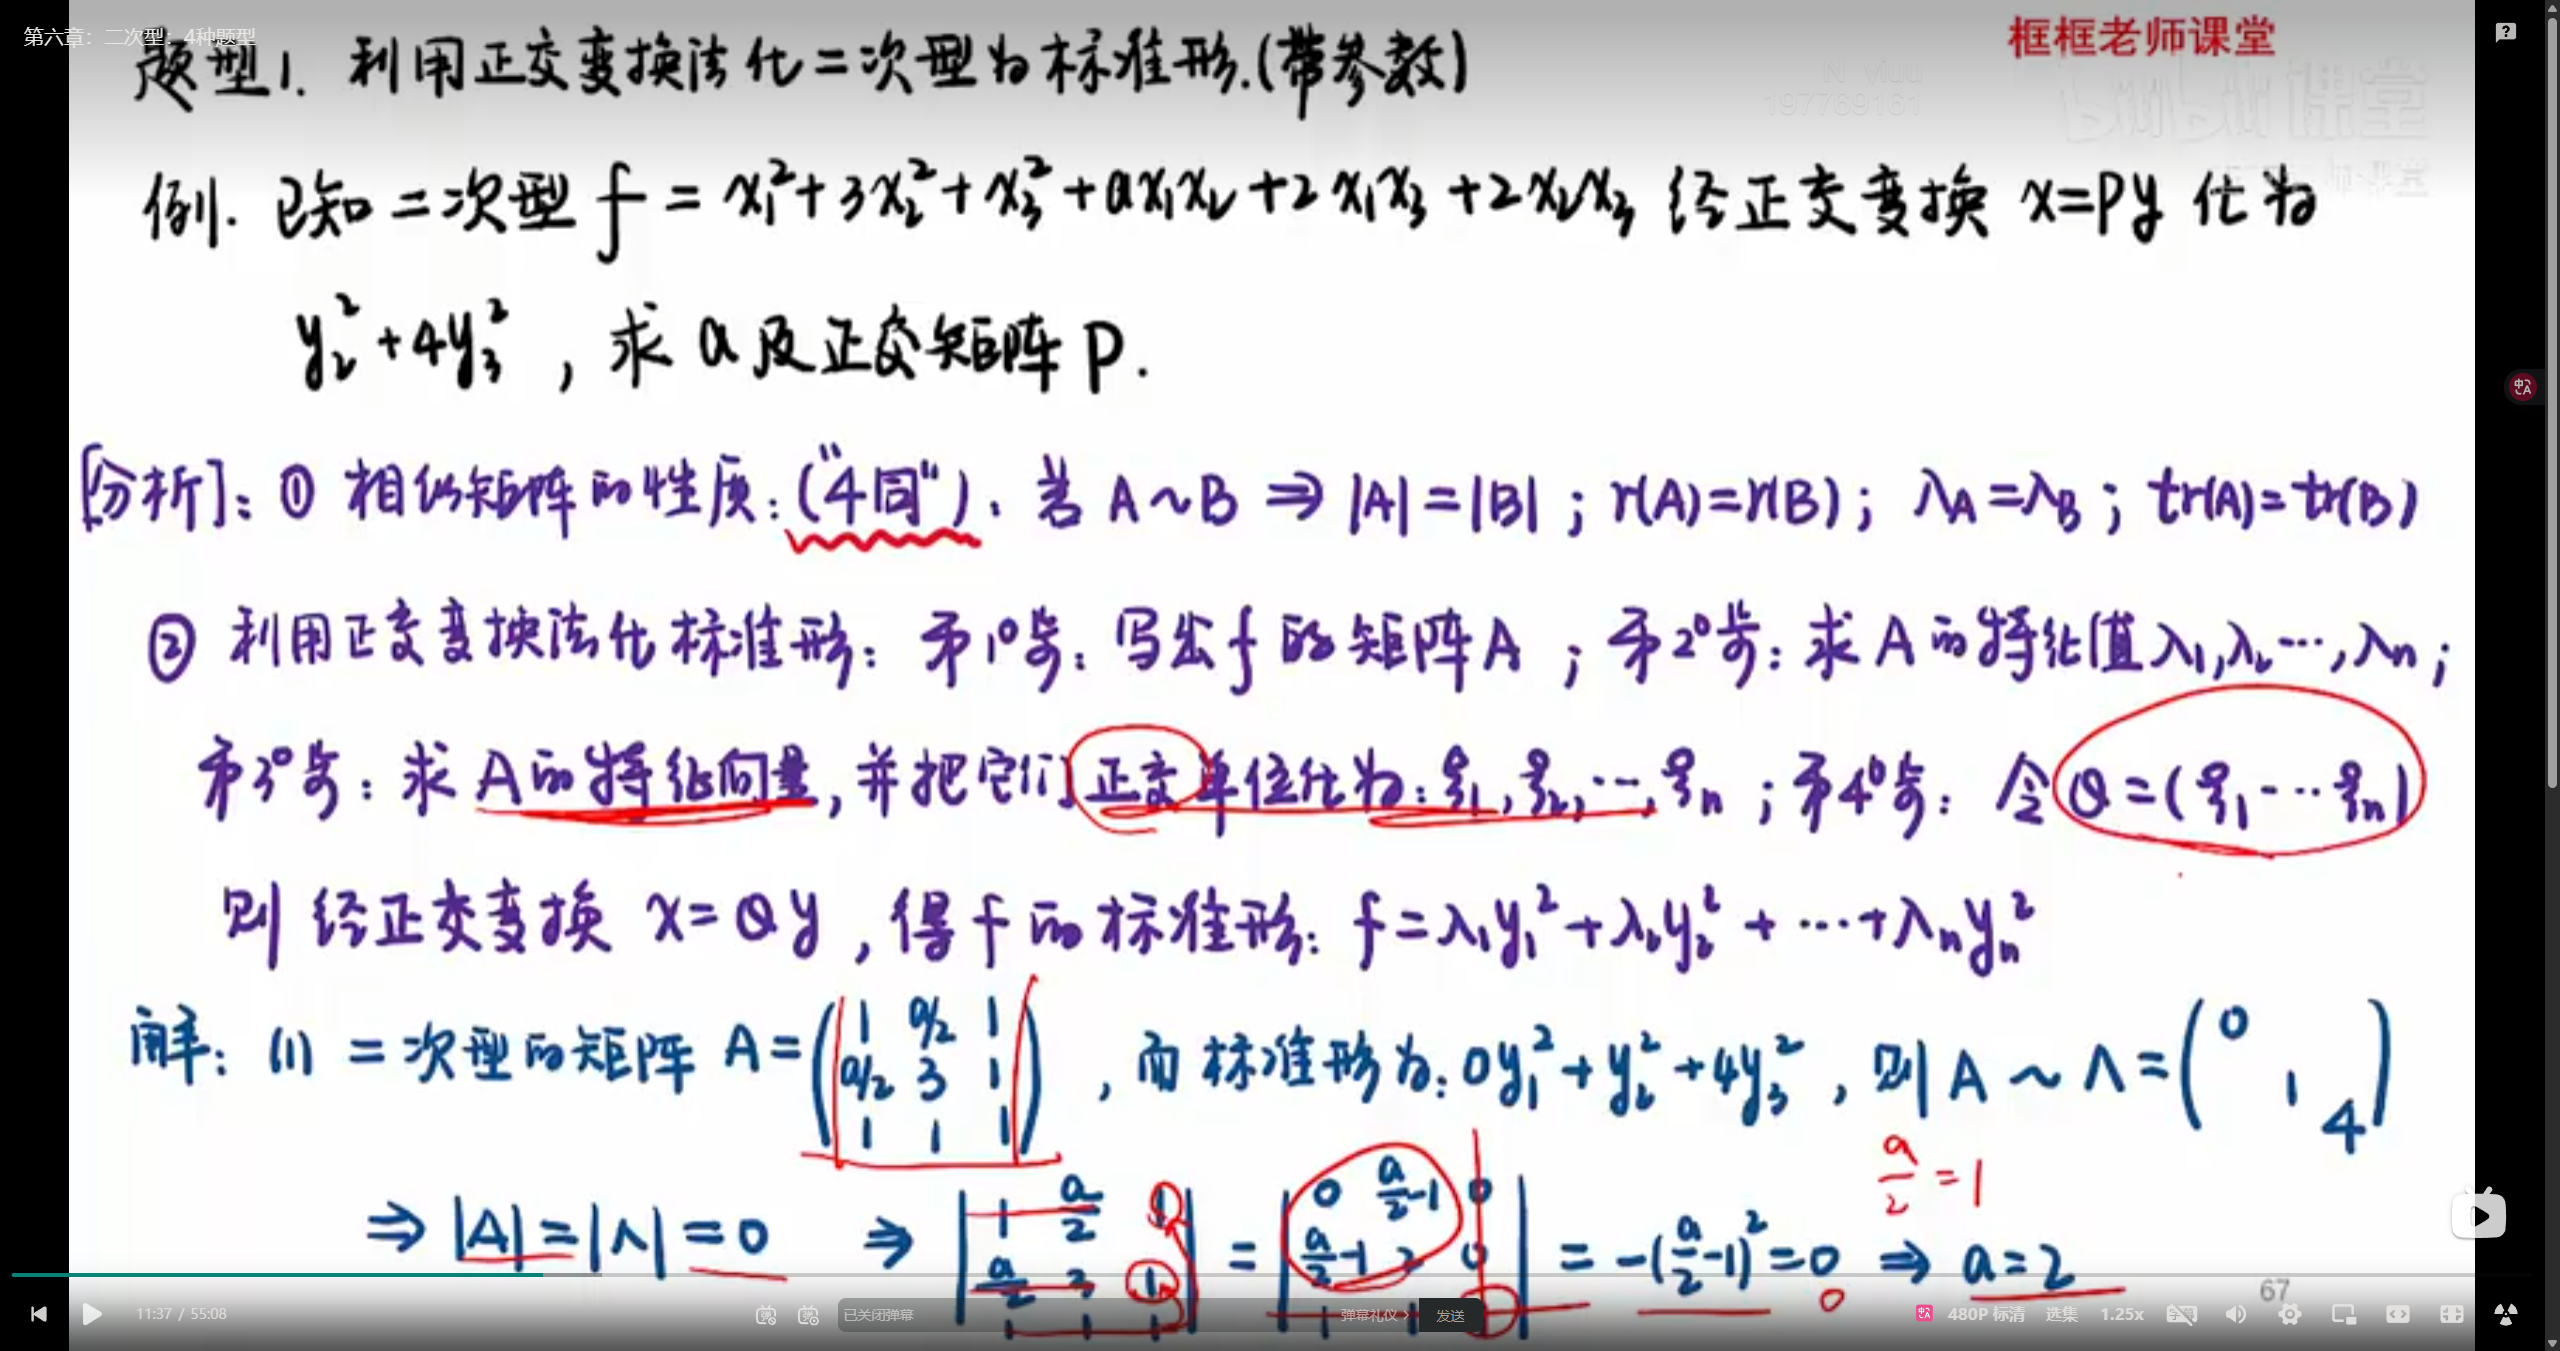 第六章：二次型：4种题型
框框老师课堂
197769161
题型1. 利用正交变换法化二次型为标准形.(带参数)
例. 已知二次型 f = x₁²+3x₂²+x₃²+ax₁x₂+2x₁x₃+2x₂x₃ 经正交变换 x=Py 化为
y₂²+4y₃², 求a及正交矩阵P.
[分析]: ① 相似矩阵的性质: ("4同"). 若 A~B ⇒ |A|=|B|; r(A)=r(B); λA=λB; tr(A)=tr(B)
② 利用正交变换法化标准形: 第1°步: 写出f的矩阵A; 第2°步: 求A的特征值λ₁,λ₂…,λn;
第3°步: 求A的特征向量, 并把它们正交单位化为: ξ₁,ξ₂,…,ξn; 第4°步: 令Q=(ξ₁…ξn)
则经正交变换 x=Qy, 得f的标准形: f=λ₁y₁²+λ₂y₂²+…+λnyn²
解: (1) 二次型的矩阵 A=(1 a/2 1
a/2 3 1
1 1 1), 而标准形为: 0y₁²+y₂²+4y₃², 则A~Λ=(0
1
4)
a/2=1
⇒ |A|=|Λ|=0 ⇒ |1 a/2 1
a/2 3 1
1 1 1| = |0 a/2-1 0
a/2-1 2 0
1 1 1| = -(a/2-1)²=0 ⇒ a=2
0
67
11:37 / 55:08
已关闭弹幕
弹幕礼仪 >
发送
480P 标清
选集
1.25x